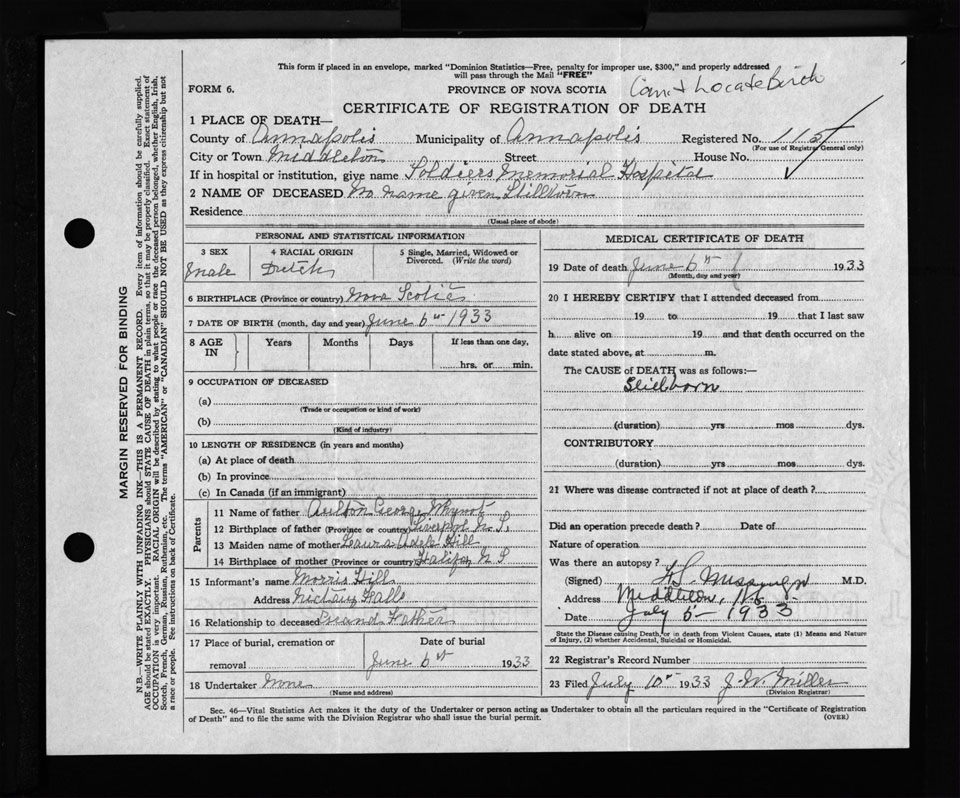 This form if placed in an envelope, marked "Dominion Statistics—Free, penalty for improper use, $300," and properly addressed
will pass through the Mail "FREE"
FORM 6.
PROVINCE OF NOVA SCOTIA
Can't Locate Birth
CERTIFICATE OF REGISTRATION OF DEATH
1 PLACE OF DEATH—
County of Annapolis Municipality of Annapolis Registered No. 115
(For use of Registrar General only)
City or Town Middleton Street House No.
If in hospital or institution, give name Soldiers Memorial Hospital
2 NAME OF DECEASED No name given Stillborn
Residence
(Usual place of abode)
PERSONAL AND STATISTICAL INFORMATION
3 SEX
male
4 RACIAL ORIGIN
Dutch
5 Single, Married, Widowed or
Divorced. (Write the word)
6 BIRTHPLACE (Province or country) Nova Scotia
7 DATE OF BIRTH (month, day and year) June 6th 1933
8 AGE
IN
Years Months Days If less than one day,
hrs. or min.
9 OCCUPATION OF DECEASED
(a)
(Trade or occupation or kind of work)
(b)
(Kind of industry)
10 LENGTH OF RESIDENCE (in years and months)
(a) At place of death
(b) In province
(c) In Canada (if an immigrant)
Parents
11 Name of father George Whynot
12 Birthplace of father (Province or country) Liverpool N.S.
13 Maiden name of mother Laura Adele Hill
14 Birthplace of mother (Province or country) Halifax N S
15 Informant's name Morris Hill
Address Nictaux Falls
16 Relationship to deceased Grand Father
17 Place of burial, cremation or
removal
Date of burial
June 6th 1933
18 Undertaker None
(Name and address)
MEDICAL CERTIFICATE OF DEATH
19 Date of death June 6th 1933
(Month, day and year)
20 I HEREBY CERTIFY that I attended deceased from
19 to 19 that I last saw
h alive on 19 and that death occurred on the
date stated above, at m.
The CAUSE of DEATH was as follows:—
Stillborn
(duration) yrs mos dys.
CONTRIBUTORY
(duration) yrs mos dys.
21 Where was disease contracted if not at place of death?
Did an operation precede death? Date of
Nature of operation
Was there an autopsy?
(Signed) M.D.
Address Middleton, N.S.
Date July 5 1933
State the Disease causing Death, or in death from Violent Causes, state (1) Means and Nature
of Injury, (2) whether Accidental, Suicidal or Homicidal.
22 Registrar's Record Number
23 Filed July 10th 1933 J. W. Miller
(Division Registrar)
Sec. 46—Vital Statistics Act makes it the duty of the Undertaker or person acting as Undertaker to obtain all the particulars required in the "Certificate of Registration
of Death" and to file the same with the Division Registrar who shall issue the burial permit.
(OVER)
MARGIN RESERVED FOR BINDING
N.B.—WRITE PLAINLY WITH UNFADING INK—THIS IS A PERMANENT RECORD. Every item of information should be carefully supplied.
AGE should be stated EXACTLY. PHYSICIANS should STATE CAUSE OF DEATH in plain terms, so that it may be properly classified. Exact statement of
OCCUPATION is very important. RACIAL ORIGIN will be described by stating to what people or race the deceased person belonged, whether English, Irish,
Scotch, French, German, Russian, Ruthenian, etc. The terms "AMERICAN" or "CANADIAN" SHOULD NOT BE USED as they express citizenship but not
a race or people. See instructions on back of Certificate.